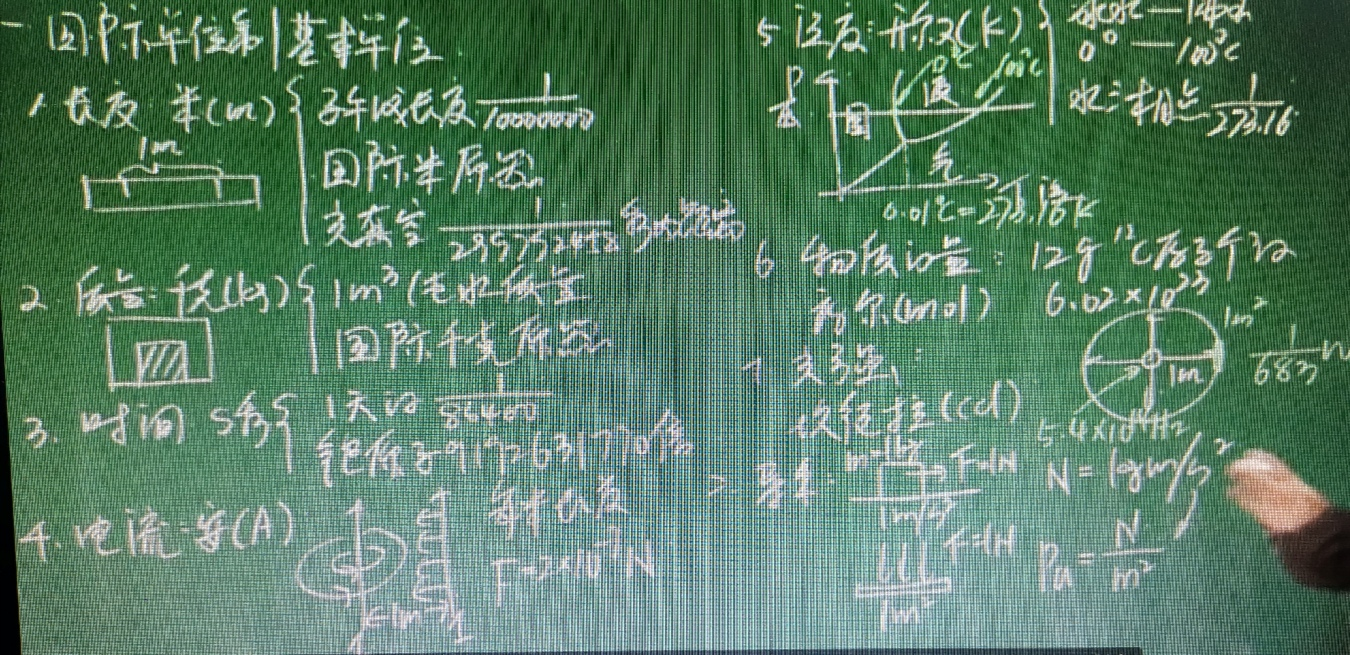 一 国际单位制 | 基本单位
1 长度 米(m) 子午线长度 1/10000000
1m
国际米原器
光真空 1/299792458 秒 距离
2. 质量: 千克(kg) 1m³ 纯水质量
国际千克原器
3. 时间 s秒 1天的 1/86400
铯原子9192631770倍
4. 电流:安(A)
每米长度
F=2×10⁻⁷N
1m
5 温度:开尔文(K)
0° — 100℃
水三相点 1/273.16
0℃ 100℃
P
固 液
气
0.01℃=273.16K
6 物质的量: 12g ¹²C原子个数
摩尔(mol) 6.02×10²³
1m²
7 光强: 1m 1/683 W
坎德拉(cd) 5.4×10¹⁴Hz
二 导出: F=1N N=kgm/s²
F=1N Pa=N/m²
1m²